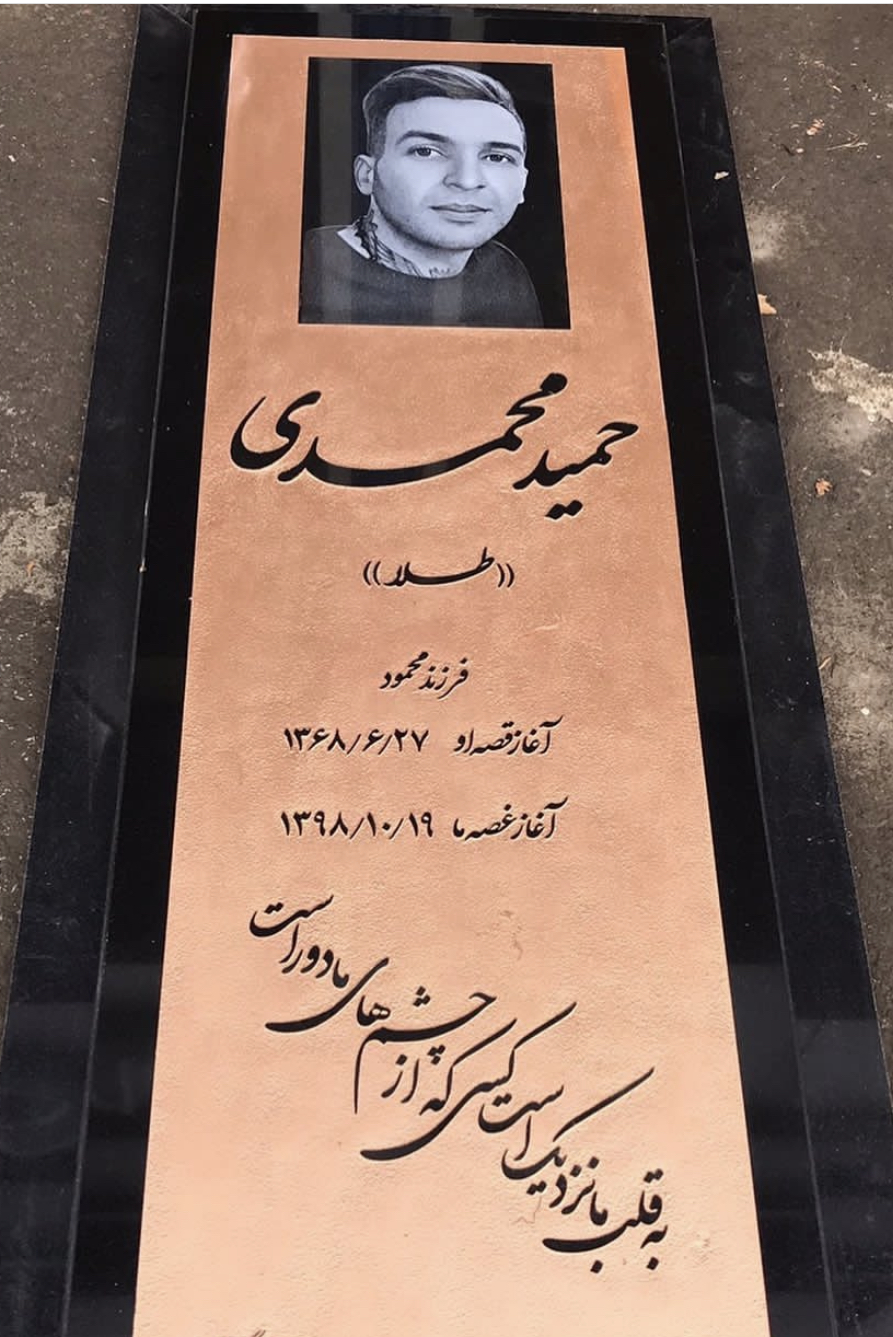 حمید محمدی
((طلا))
فرزند محمود
آغاز قصه او ۱۳۶۸/۶/۲۷
آغاز غصه ما ۱۳۹۸/۱۰/۱۹
به قلب ما نزدیک است کسی که از چشم‌های ما دور است